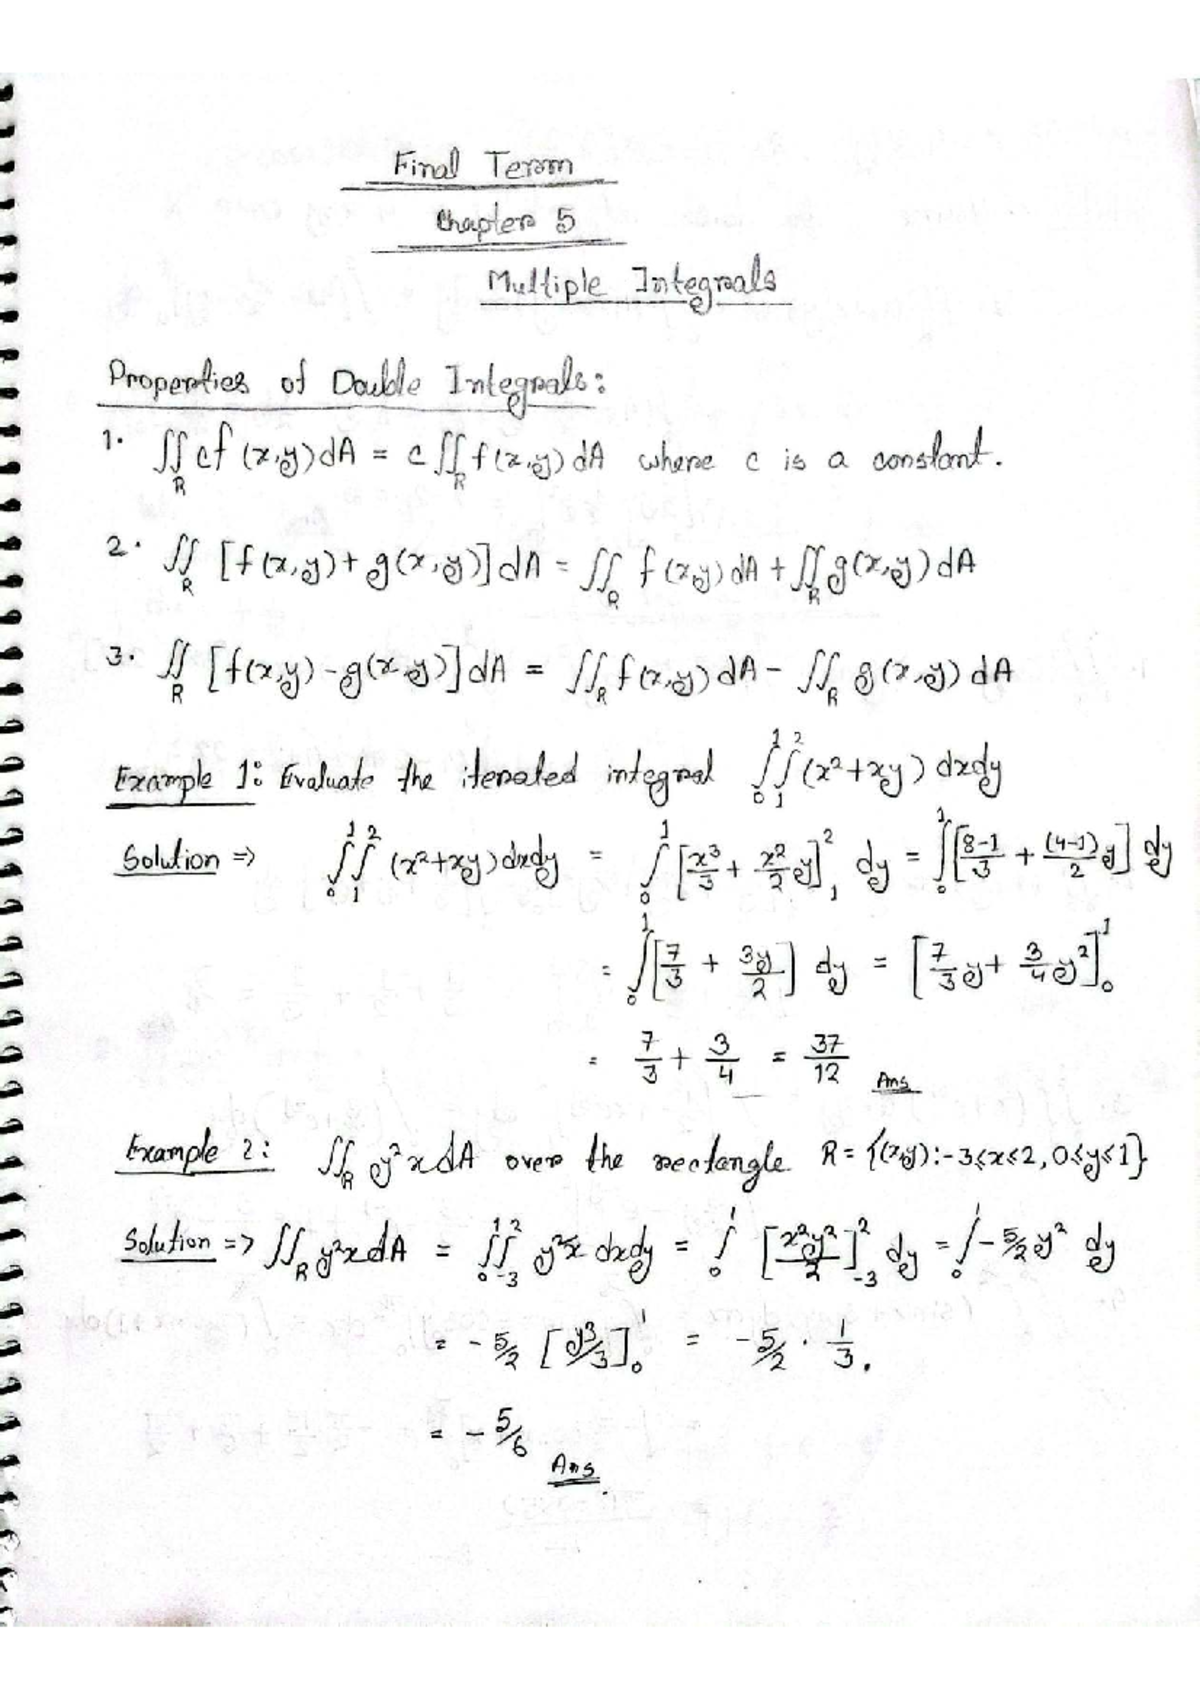 Final Term
Chapter 5
Multiple Integrals
Properties of Double Integrals:
1. ∬_R cf(x,y)dA = c∬_R f(x,y)dA where c is a constant.
2. ∬_R [f(x,y)+g(x,y)]dA = ∬_R f(x,y)dA + ∬_R g(x,y)dA
3. ∬_R [f(x,y)-g(x,y)]dA = ∬_R f(x,y)dA - ∬_R g(x,y)dA
Example 1: Evaluate the iterated integral ∫_0^1 ∫_1^2 (x²+xy)dxdy
Solution => ∫_0^1 ∫_1^2 (x²+xy)dxdy = ∫_0^1 [x³/3 + x²/2 y]_1^2 dy = ∫_0^1 [8-1/3 + (4-1)/2 y] dy
= ∫_0^1 [7/3 + 3y/2] dy = [7/3 y + 3/4 y²]_0^1
= 7/3 + 3/4 = 37/12 Ans
Example 2: ∬_R y²x dA over the rectangle R = {(x,y):-3≤x≤2, 0≤y≤1}
Solution => ∬_R y²x dA = ∫_0^1 ∫_-3^2 y²x dxdy = ∫_0^1 [x²y²/2]_-3^2 dy = ∫_0^1 -5/2 y² dy
= -5/2 [y³/3]_0^1 = -5/2 · 1/3.
= -5/6 Ans.